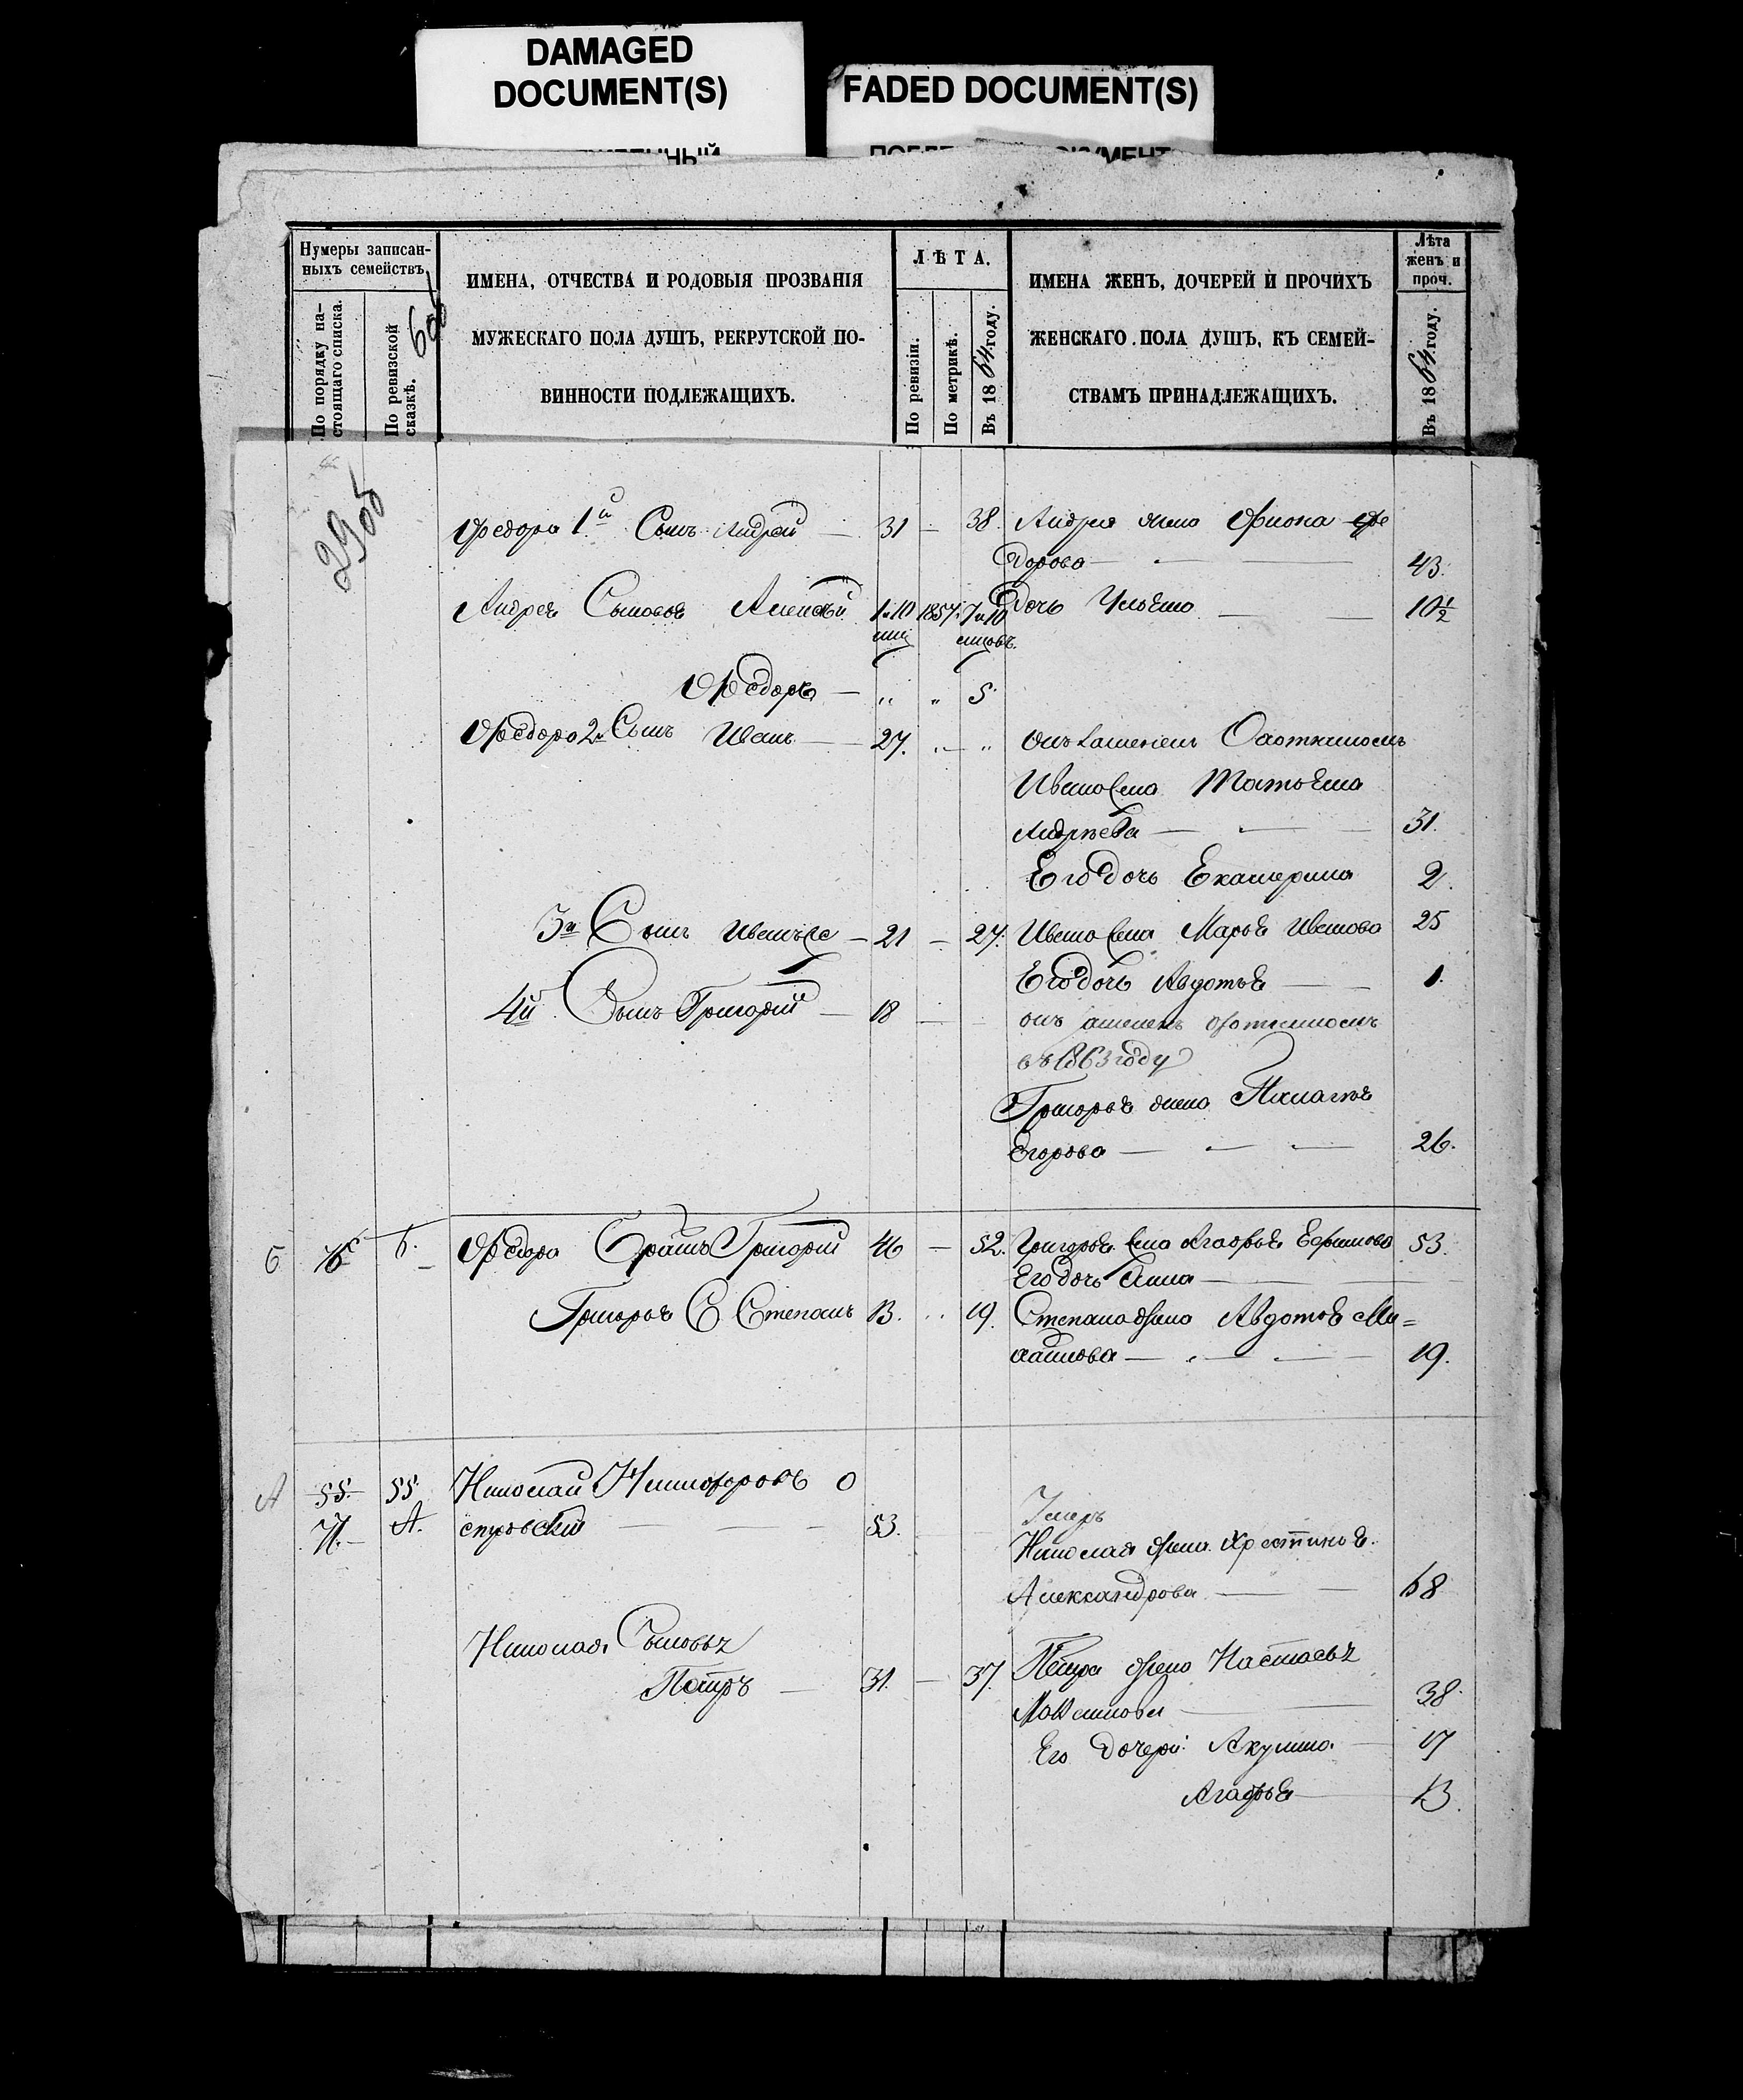 DAMAGED
DOCUMENT(S)
FADED DOCUMENT(S)
Нумеры записан-
ныхъ семействъ
По порядку на-
стоящаго списка.
По ревизской
сказкѣ.
ИМЕНА, ОТЧЕСТВА И РОДОВЫЯ ПРОЗВАНІЯ
МУЖЕСКАГО ПОЛА ДУШЪ, РЕКРУТСКОЙ ПО-
ВИННОСТИ ПОДЛЕЖАЩИХЪ.
ЛѢТА.
По ревизіи.
По метрикѣ.
Въ 1864 году.
ИМЕНА ЖЕНЪ, ДОЧЕРЕЙ И ПРОЧИХЪ
ЖЕНСКАГО ПОЛА ДУШЪ, КЪ СЕМЕЙ-
СТВАМЪ ПРИНАДЛЕЖАЩИХЪ.
Лѣта
женъ и
проч.
Въ 1864 году.
Федора 1й Сынъ Андрей — 31 — 38. Андрея жена Фиона Фе
дорова — 43.
Андрея Сыновья Алексѣй 1 и 10 1857. 7 и 10 дочь Ульяна — 10 1/2
Федоръ — " " 5
Федора 2й Сынъ Иванъ — 27. Охотникомъ
Ивана жена Татьяна
Андреева — 31.
Его дочь Екатерина 2.
3й Сынъ Иванъ — 21 — 27. Ивана жена Марья Иванова 25
Его дочь Авдотья — 1.
4й Сынъ Григорій — 18 —
въ 1863 году
Григорья жена
Егорова — 26.
Б Б. Федора Братъ Григорій 46 — 52. Григорья жена Агафья Ефимова 53.
Его дочь Анна —
Григорья С. Степанъ 13. 19. Степана жена Авдотья Ми=
хайлова — 19.
А 55. 55 Николай Никифоровъ О
А. 53.
Умеръ
Николая жена Хрестинья
Александрова — 68
Николая Сыновья
Петръ — 31. — 37. Петра жена Настасья
38.
Его дочери: Акулина 17
Агафья — 13.